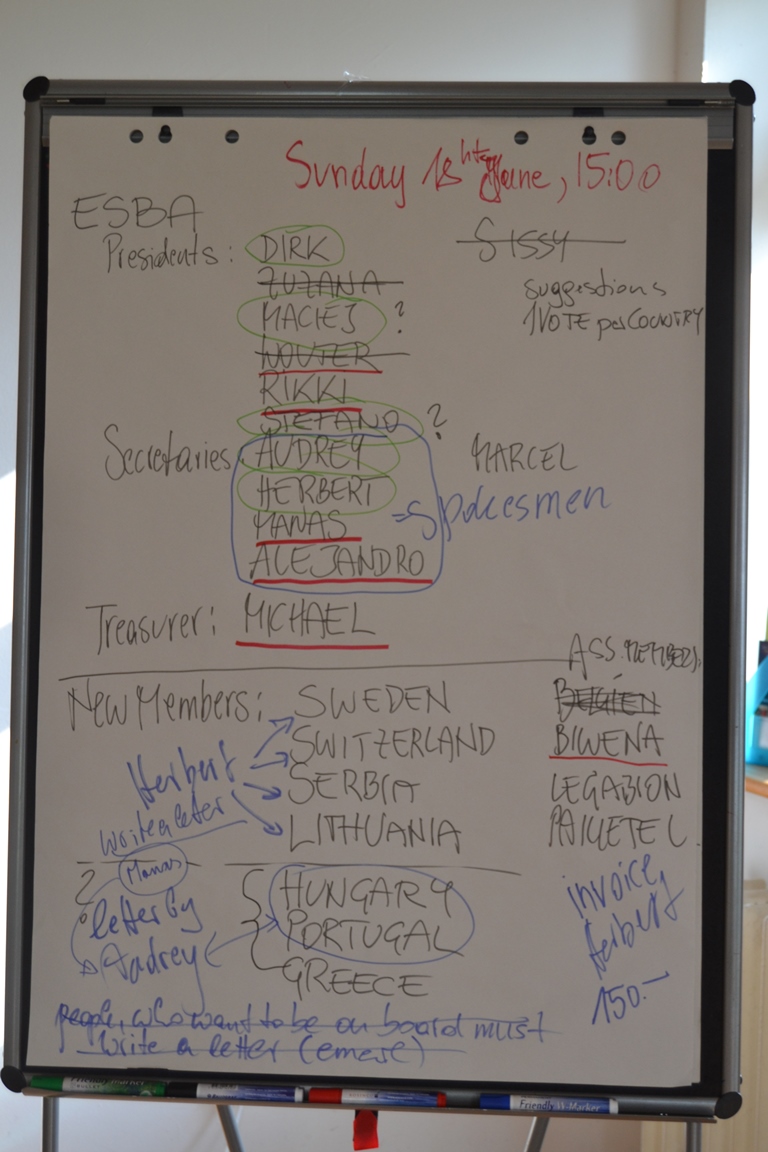 Sunday 18th June, 15:00
ESBA
Presidents: DIRK
SISSY
ZUZANA
suggestions
MACIEJ ?
1 VOTE per COUNTRY
WOUTER
RIKKI
STEFANO ?
Secretaries: AUDREY
MARCEL
HERBERT
MANAS = Spokesmen
ALEJANDRO
Treasurer: MICHAEL
ASS. MEMBERS:
New Members: SWEDEN
SWITZERLAND
BIWENA
Herbert
SERBIA
LEGABION
write a leter
LITHUANIA
Manas
?
HUNGARY
invoice,
letter by
PORTUGAL
Herbert
Audrey
GREECE
150.-
people, who want to be on board must
write a letter
Friendly Marker